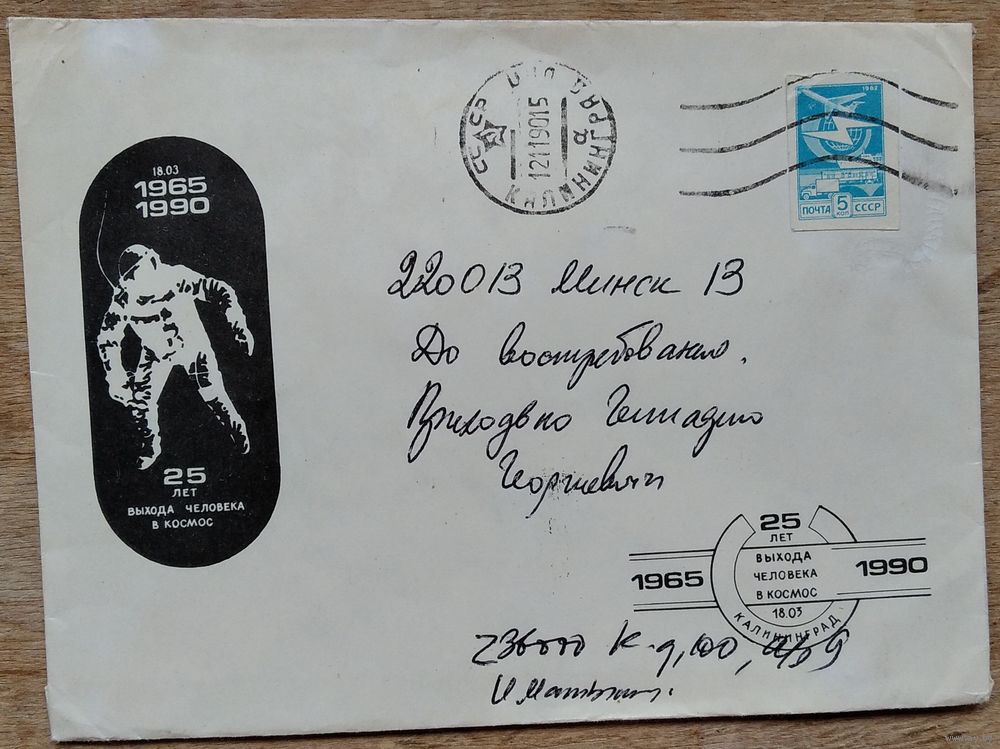 18.03
1965
1990
25
ЛЕТ
ВЫХОДА ЧЕЛОВЕКА
В КОСМОС
СССР
КАЛИНИНГРАД
12119015
а
1982
ПОЧТА 5 КОП СССР
220013 Минск 13
До востребования.
Геннадию
Георгиевичу
25
ЛЕТ
ВЫХОДА
ЧЕЛОВЕКА
В КОСМОС
18.03
1965
1990
КАЛИНИНГРАД
236000 К-д, 100, а/я 9